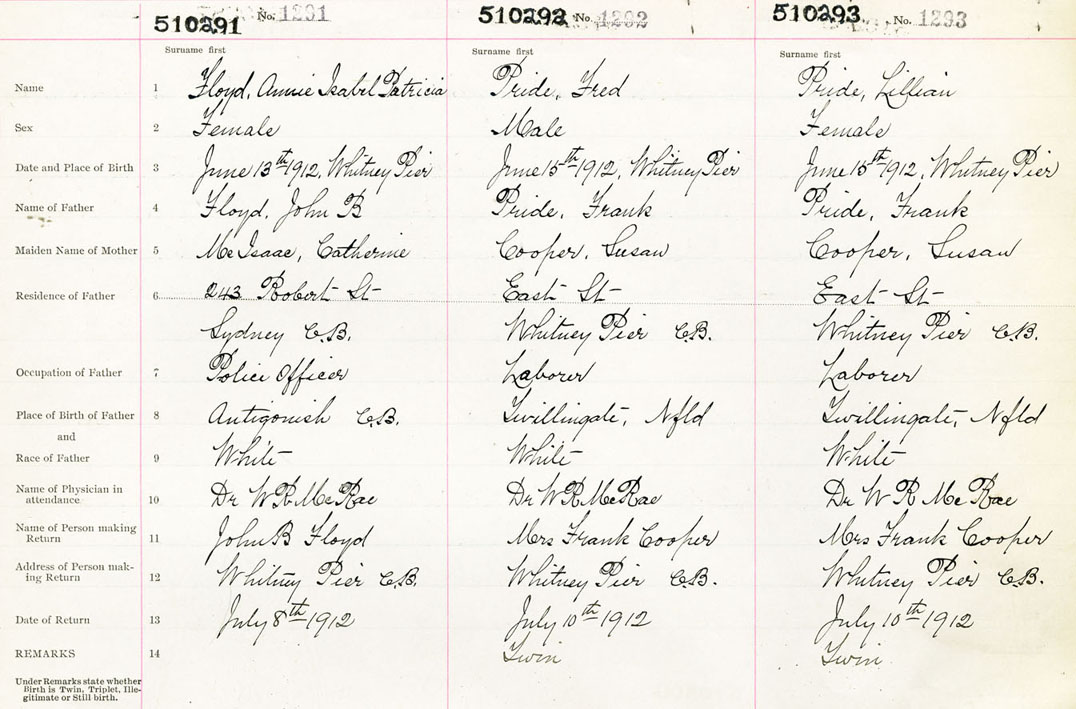 510291 No. 1291 510292 No. 1292 510293 No. 1293
Surname first Surname first Surname first
Name 1 Floyd, Annie Isabel Patricia Pride, Fred Pride, Lillian
Sex 2 Female Male Female
Date and Place of Birth 3 June 13th 1912, Whitney Pier June 15th 1912, Whitney Pier June 15th 1912, Whitney Pier
Name of Father 4 Floyd, John B Pride, Frank Pride, Frank
Maiden Name of Mother 5 McIsaac, Catherine Cooper, Susan Cooper, Susan
Residence of Father 6 243 Robert St East St East St
Sydney C.B. Whitney Pier C.B. Whitney Pier C.B.
Occupation of Father 7 Police Officer Laborer Laborer
Place of Birth of Father 8 Antigonish C.B. Twillingate, Nfld Twillingate, Nfld
and
Race of Father 9 White White White
Name of Physician in
attendance 10 Dr W R McRae Dr W R McRae Dr W R McRae
Name of Person making
Return 11 John B Floyd Mrs Frank Cooper Mrs Frank Cooper
Address of Person mak-
ing Return 12 Whitney Pier C.B. Whitney Pier C.B. Whitney Pier C.B.
Date of Return 13 July 8th 1912 July 10th 1912 July 10th 1912
REMARKS 14 Twin Twin
Under Remarks state whether
Birth is Twin, Triplet, Ille-
gitimate or Still birth.